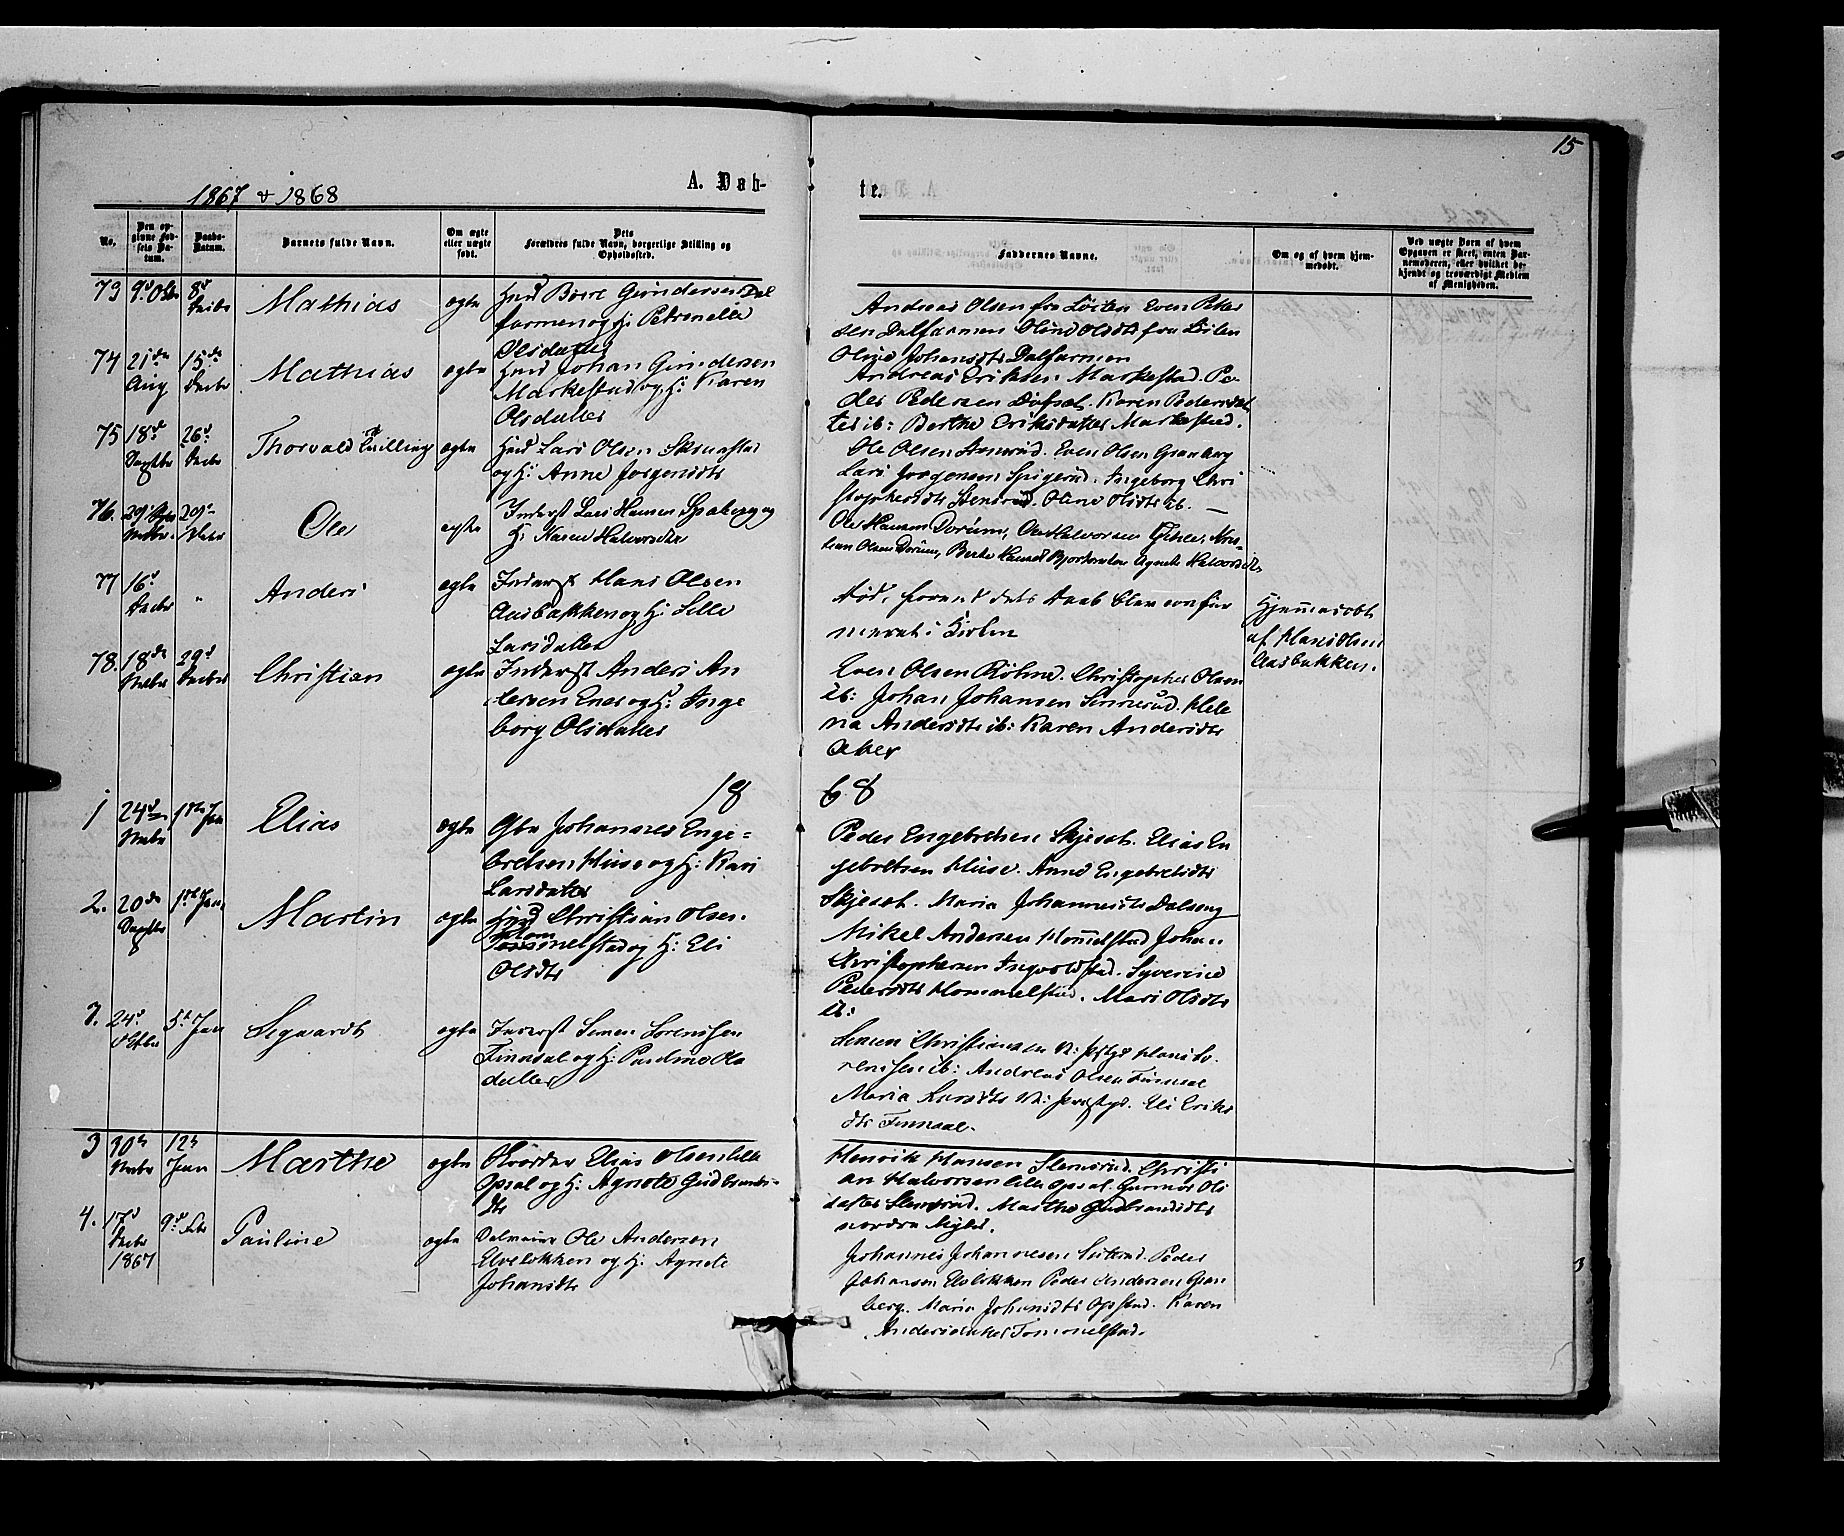 15
1867 & 1868
A. Døb-
te.
No.
Den op-
givne Fød-
sels Da-
tum.
Daabs-
Datum.
Barnets fulde Navn.
Om ægte
eller uægte
født.
Dets
Forældres fulde Navn, borgerlige Stilling og
Opholdssted.
Faddernes Navne.
Om og af hvem hjem-
medøbt.
Ved uægte Børn af hvem
Opgaven er skeet, enten Bar-
nemoderen, eller hvilket be-
kjendt og troværdigt Medlem
af Menigheden.
73 9d 8d
Mathias
ægte
Gundersen Dal
farmen og H: Petronelle
Olsdatter
Andreas Olsen fra Løiten Even Peter
sen Dalfarmen Oline Olsdtr fra Løiten
Oline Johansdtr Dalfarmen
74 21de Aug 15de Decbr
Mathias
ægte
Husd Johan Gundersen
Markestad og H: Karen
Olsdatter
Andreas Eriksen Markestad. Pe-
der Pedersen Karen Pedersdat
ter ib: Berthe Eriksdatter Markestad.
75 18d Septbr 26d Decbr
Thorvald Tvilling
ægte
Husd Lars Olsen
og H: Anne Jørgensdtr
Ole Olsen Even Olsen Granberg
Lars Jørgensen Ingeborg Chri
stophersdtr Stensrud. Oline Olsdtr ib.
76.
Ole
ægte
Inderst Lars Hansen og
H: Karen Halvorsdtr
Ole Hansen Dorum, Ole Halvorsen
tian Olsen Dorum, Berte Hansdtr Agnete Halvorsdtr
77 16d Decbr "
Anders
ægte
Inderst Hans Olsen
Aasbakken og H: Sille
Larsdatter
død, forend dets Daab blev confir
meret i Kirken
Hjemmedøbt
af Hans Olsen
Aasbakken.
78. 18de Novbr 29d Decbr
Christian
ægte
Inderst Anders An
dersen Ener og H: Inge
borg Olsdatter
Even Olsen Røhne. Christopher Olsen
ib: Johan Johansen Hele
na Andersdtr ib: Karen Andersdtr
Aker
18
68
1 24de Novbr 1ste Jan
Elias
ægte
Gbr Johannes Enge-
bretsen Huse og H: Kari
Larsdatter
Peder Engebretsen Skjeset. Elias En
gebretsen Huse. Anne Engebretsdtr
Skjeset. Maria Johannesdtr Dalseng
2. 20de Septbr 1ste Jan
Martin
ægte
Husd Christian Olsen
Hommelstad og H: Eli
Olsdtr
Mikel Andersen Hommelstad Johan
Christophersen Ingvoldstad. Syverine
Pedersdtr Hommelstad. Mari Olsdtr
ib:
24d 5te Jan
Segaardt
ægte
Inderst Simen Sørenssen
Finnsal og H: Pauline Ols
datter
Simen Christiansen Hans Sø
renssen ib: Andreas Olsen Finnsal
Maria Eli Eriks
dtr Finnsal.
3 30te Novbr 12te Jan
Marthe
ægte
Elias Olsen lille
Opsal og H: Agnete Gudbrands-
dtr
Henrik Hansen Stensrud. Christi
an Halvorsen lille Opsal. Gunnor Ols
datter Stensrud. Marthe Gudbrandsdtr
nordre
4. 17d Decbr 1867 9d Febr
Pauline
ægte
Ole Andersen
Elveløkken og H: Agnete
Johansdtr
Johannes Johannesen Peder
Johansen Elveløkken Peder Andersen Gran
berg. Maria Johansdtr Opstad. Karen
Andersdatter Tommelstad.